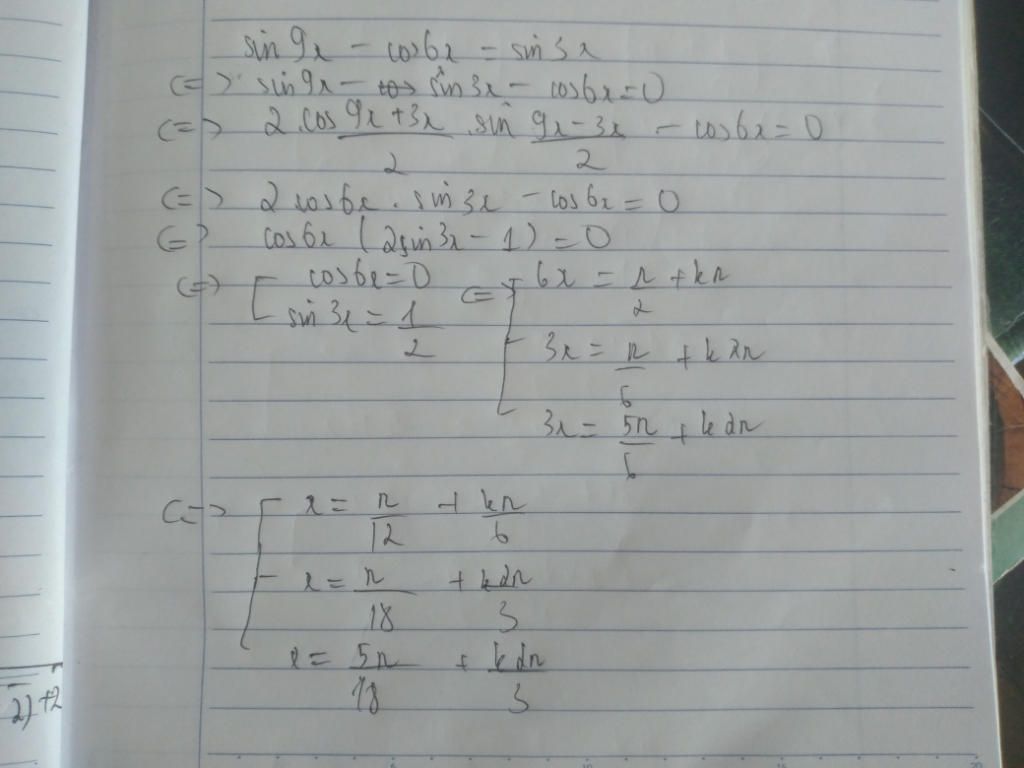 sin 9x − cos6x = sin 3x
<=> sin9x − sin 3x − cos6x = 0
<=> 2.cos (9x + 3x)/2 . sin (9x − 3x)/2 − cos6x = 0
<=> 2 cos6x . sin 3x − cos6x = 0
<=> cos6x (2sin3x − 1) = 0
<=> [ cos6x = 0 <=> [ 6x = π/2 + kπ
sin 3x = 1/2
3x = π/6 + k2π
3x = 5π/6 + k2π
<=> [ x = π/12 + kπ/6
x = π/18 + k2π/3
x = 5π/18 + k2π/3
2) +2